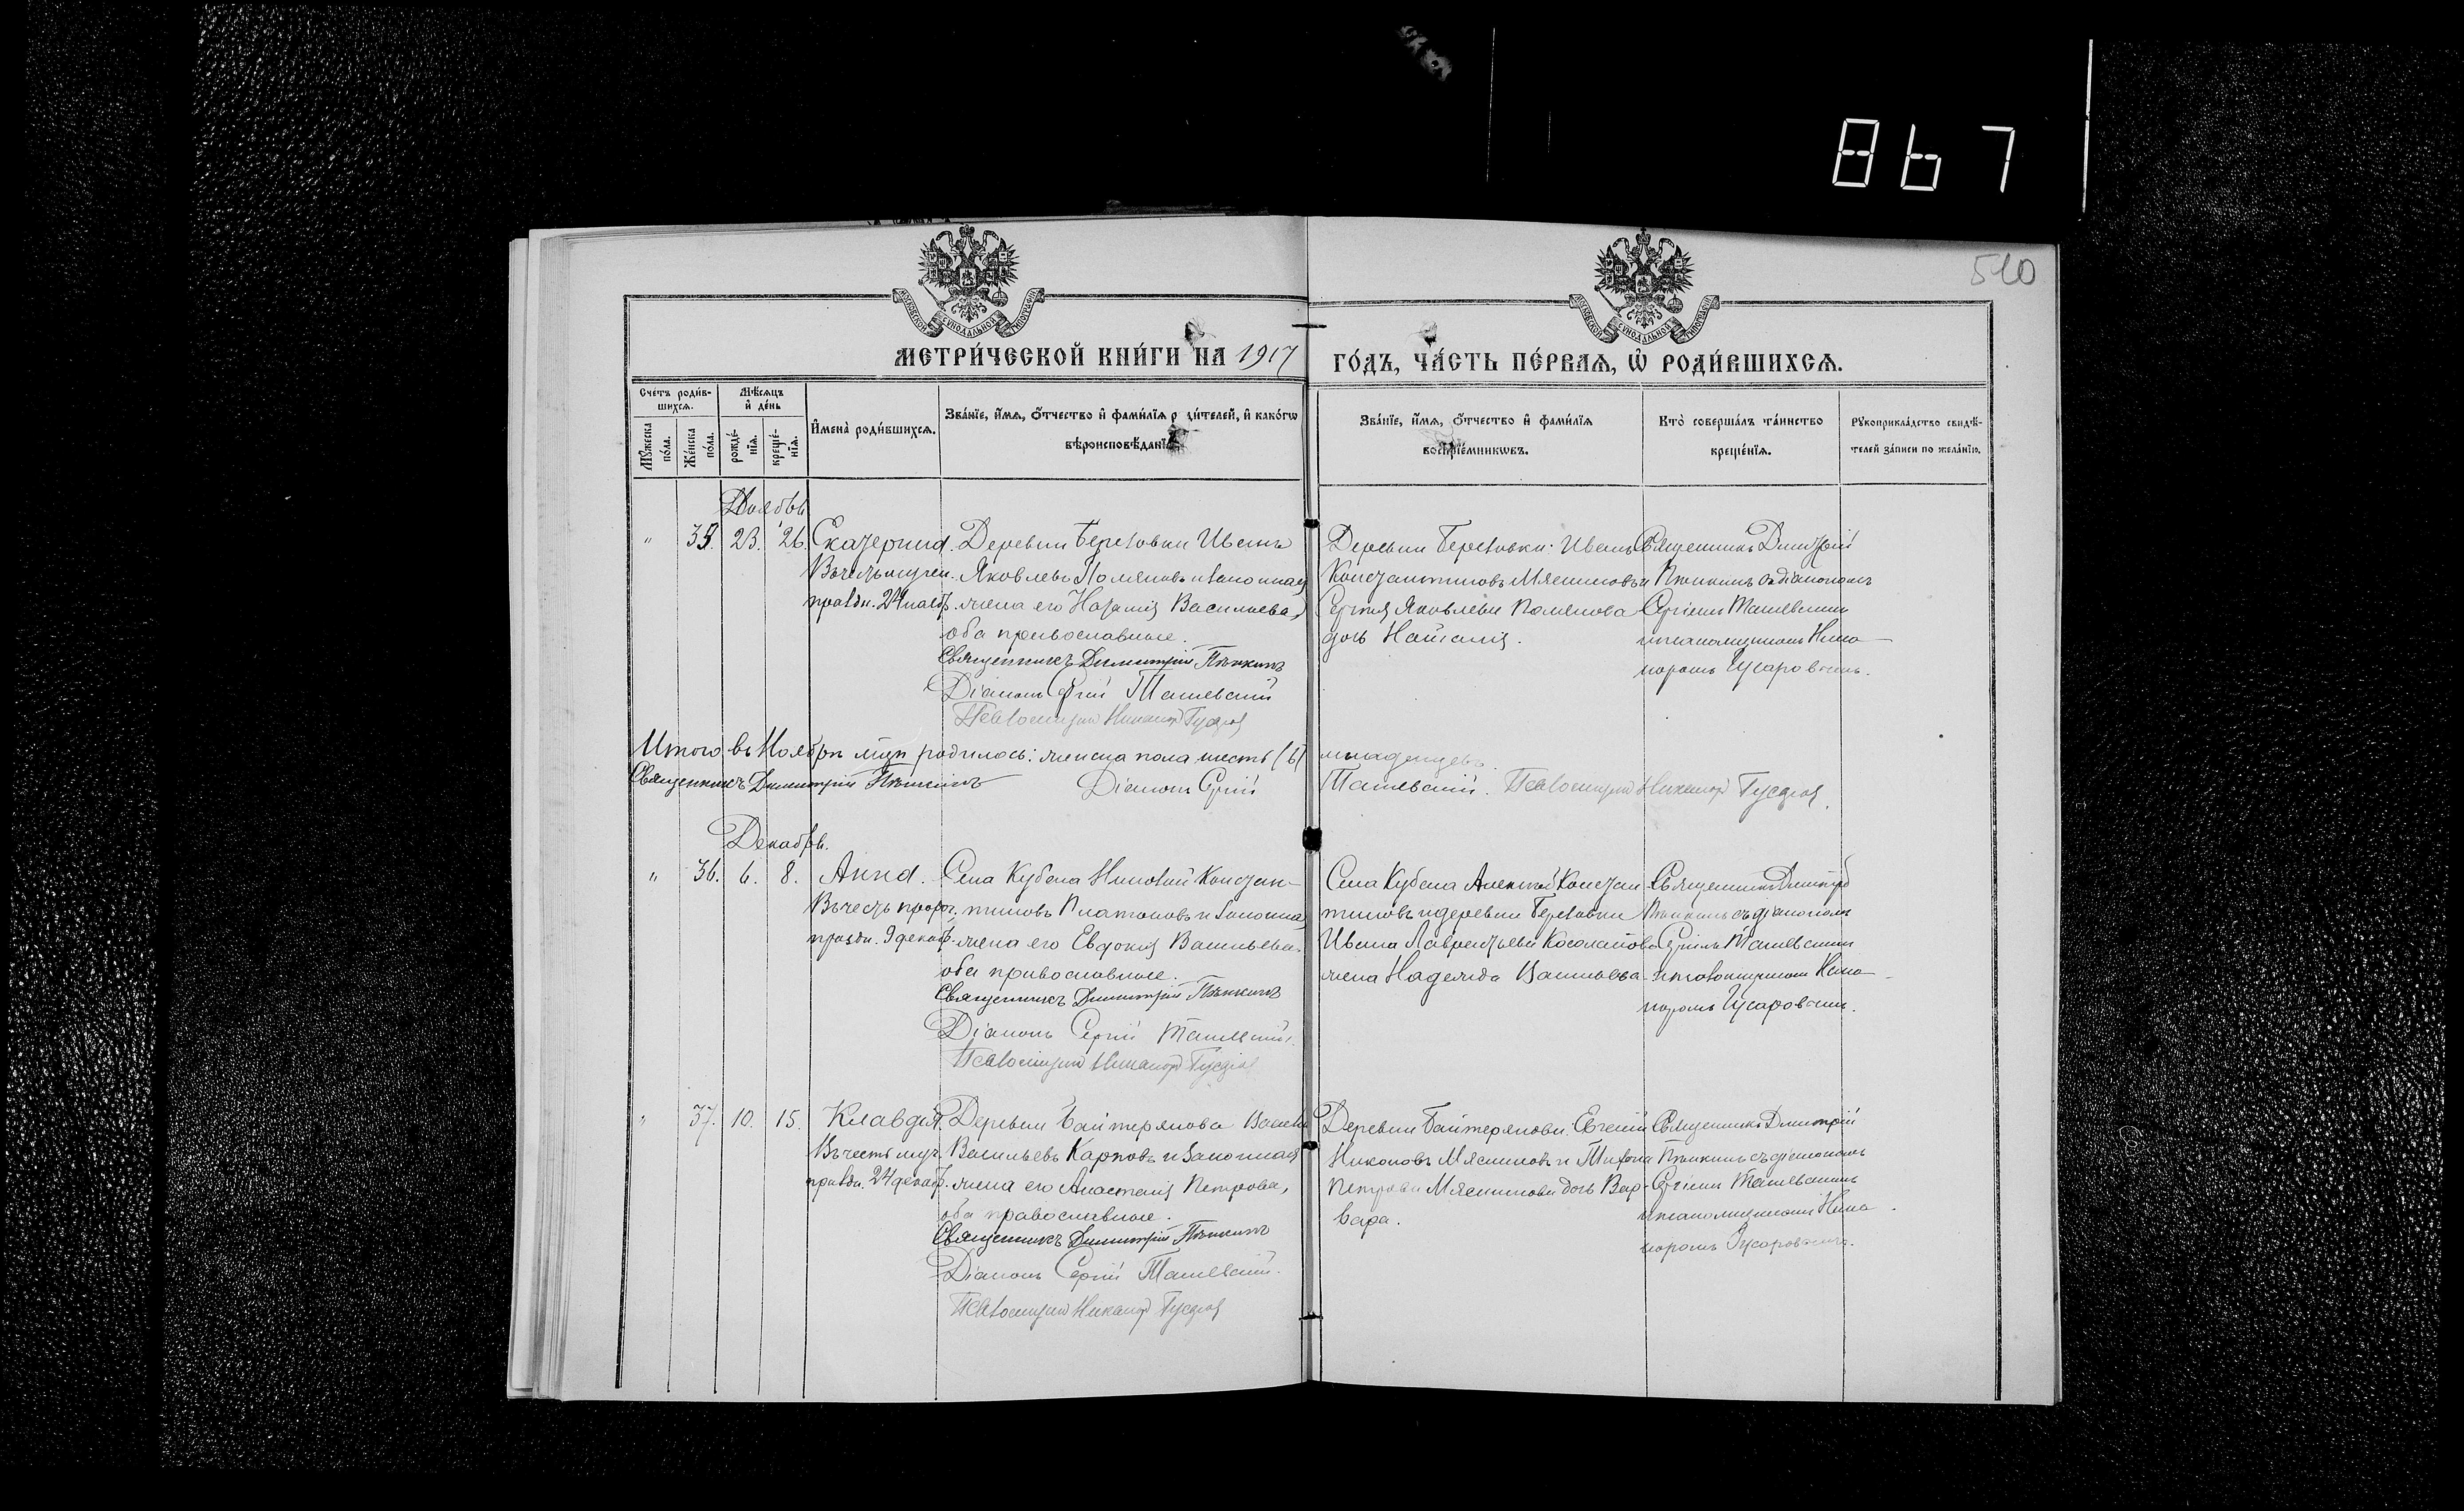 867
510
МОСКОВСКОЙ СѴНОДАЛЬНОЙ ТИПОГРАФІИ
МОСКОВСКОЙ СѴНОДАЛЬНОЙ ТИПОГРАФІИ
МЕТРИ́ЧЕСКОЙ КНИ́ГИ НА 1917 ГО́ДЪ, ЧА́СТЬ ПЕ́РВАѦ, Ѡ҆ РОДИ́ВШИХСѦ.
Сче́тъ роди́в-
шихсѧ.
Мꙋ́жеска по́ла.
Же́нска по́ла.
Мѣ́сѧцъ
и҆ де́нь
рожде́-
нїѧ.
креще́-
нїѧ.
И҆мена̀ роди́вшихсѧ.
Зва́нїе, и҆́мѧ, ѻ҆́тчество и҆ фами́лїѧ роди́телей, и҆ како́гѡ
вѣроисповѣ́данїѧ.
Зва́нїе, и҆́мѧ, ѻ҆́тчество и҆ фами́лїѧ
воспрїе́мникѡвъ.
Кто̀ соверша́лъ та́инство
креще́нїѧ.
Рꙋкоприкла́дство свидѣ́-
телей за́писи по жела́нїю.
Ноябрь
" 35. 23. 26. Екатерина. Деревни Березовки Иванъ
Въ честь мучен. Яковлевъ Поляковъ и законная
праздн. 24 нояб. жена его Наталія Васильева,
оба православные.
Священникъ Димитрій Пѣнкинъ
Діаконъ Сергій Ташевскій
Псаломщикъ Никаноръ Гусаров
Деревни Березовки: Иванъ
Константиновъ Мясниковъ и
Сергѣя Яковлева Полякова
дочь Наталія.
Священникъ Димитрій
Пѣнкинъ съ діакономъ
Сергіемъ Ташевскимъ
и псаломщикомъ Ника-
норомъ Гусаровымъ.
Итого въ Ноябрѣ м-цѣ родилось: женска пола шесть (6) младенцевъ.
Священникъ Димитрій Пѣнкинъ Діаконъ Сергій Ташевскій. Псаломщикъ Никаноръ Гусаров
Декабрь.
" 36. 6. 8. Анна. Села Кубена Николай Констан-
Въ честь прор. тиновъ Платоновъ и законная
праздн. 9 декаб. жена его Евдокія Васильева,
оба православные.
Священникъ Димитрій Пѣнкинъ
Діаконъ Сергій Ташевскій.
Псаломщикъ Никаноръ Гусаров
Села Кубена Алексѣй Констан-
тиновъ и деревни Березовки
Ивана Лаврентьева Косолапова
жена Надежда Васильева
Священникъ Димитрій
Пѣнкинъ съ діакономъ
Сергіемъ Ташевскимъ
и псаломщикомъ Ника-
норомъ Гусаровымъ.
" 37. 10. 15. Клавдія. Деревни Байтерякова Василій
Въ честь муч. Васильевъ Карповъ и законная
праздн. 24 декаб. жена его Анастасія Петрова,
оба православные.
Священникъ Димитрій Пѣнкинъ
Діаконъ Сергій Ташевскій.
Псаломщикъ Никаноръ Гусаров
Деревни Байтерякова. Евгеній
Никоновъ Мясниковъ и Тихона
Петрова Мясникова дочь Вар-
вара.
Священникъ Димитрій
Пѣнкинъ съ діакономъ
Сергіемъ Ташевскимъ
и псаломщикомъ Ника-
норомъ Гусаровымъ.